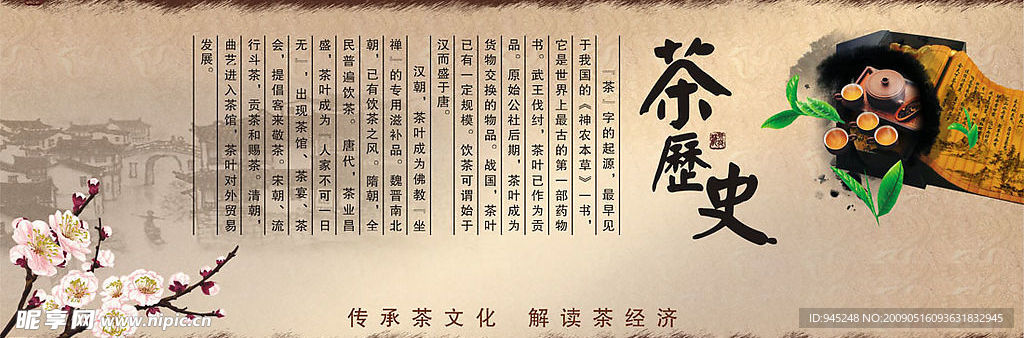 茶歷史
『茶』字的起源，最早见
于我国的《神农本草》一书，
它是世界上最古的第一部药物
书。武王伐纣，茶叶已作为贡
品。原始公社后期，茶叶成为
货物交换的物品。战国，茶叶
已有一定规模。饮茶可谓始于
汉而盛于唐。
汉朝，茶叶成为佛教『坐
禅』的专用滋补品。魏晋南北
朝，已有饮茶之风。隋朝，全
民普遍饮茶。唐代，茶业昌
盛，茶叶成为『人家不可一日
无』，出现茶馆、茶宴、茶
会，提倡客来敬茶。宋朝、流
行斗茶，贡茶和赐茶。清朝，
曲艺进入茶馆，茶叶对外贸易
发展。
传承茶文化 解读茶经济
昵享网 www.nipic.cn
ID:945248 NO:20090516093631832945